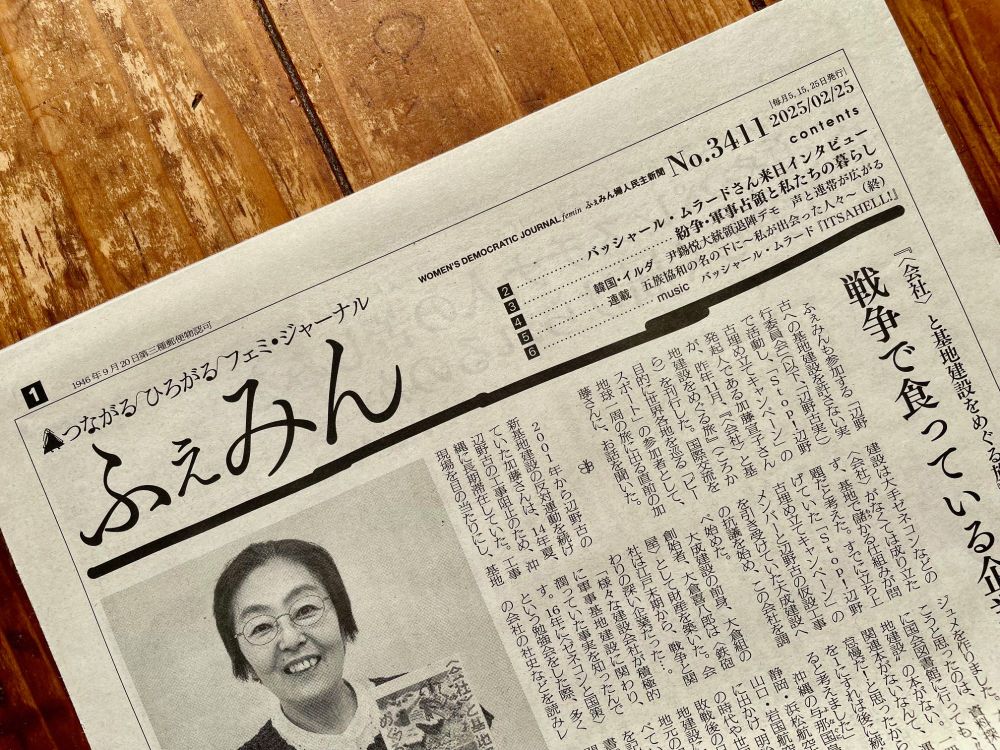 1
1946年9月20日第三種郵便物認可
つながる/ひろがる/フェミ・ジャーナル
ふぇみん
WOMEN'S DEMOCRATIC JOURNAL femin ふぇみん婦人民主新聞
No.3411
|毎月5, 15, 25日発行|
2025/02/25
contents
2 バッシャール・ムラードさん来日インタビュー
3 紛争・軍事占領と私たちの暮らし
4 韓国・イルダ 尹錫悦大統領退陣デモ 声と連帯が広がる
5 連載 五族協和の名の下に～私が出会った人々～(終)
6 music バッシャール・ムラード「ITSAHELL!」
『〈会社〉と基地建設をめぐる
戦争で食っている企
ふぇみんも参加する「辺野
古への基地建設を許さない実
行委員会(以下、辺野古実)
で活動し、「Stop!辺野
古埋め立てキャンペーン」の
発起人である加藤宣子さん
が、昨年11月、『〈会社〉と基
地建設をめぐる旅』(ころか
ら)を刊行した。国際交流を
目的に世界各地を巡る「ピー
スボート」の参加者として、
地球一周の旅に出る直前の加
藤さんに、お話を聞いた。
2001年から辺野古の
新基地建設の反対運動を続け
ていた加藤さんは、14年夏、
辺野古の工事阻止のため、沖
縄に長期滞在していた。工事
現場を目の当たりにし、基地
建設は大手ゼネコンなどの
〈会社〉がなくては成り立た
ず、基地で儲かる仕組みが問
題だと考えた。すでに立ち上
げていた「Stop!辺野
古埋め立てキャンペーン」の
メンバーと辺野古の仮設工事
を引き受けていた大成建設へ
の抗議を始め、この会社を調
べ始めた。
大成建設の前身、大倉組の
創始者、大倉喜八郎は〈鉄砲
屋〉として財産を築いた。会
社は江戸末期から、戦争と関
わりの深い企業だった…。
「様々な建設会社が積極的
に軍事基地建設に関わり、
潤っていた事実を知ったんで
す。16年に〈ゼネコンと国策〉
という勉強会をした際、多く
の会社の社史などを読みレ
ジュメを作りました。
に国会図書館に行っても、
地建設〟の本がない。